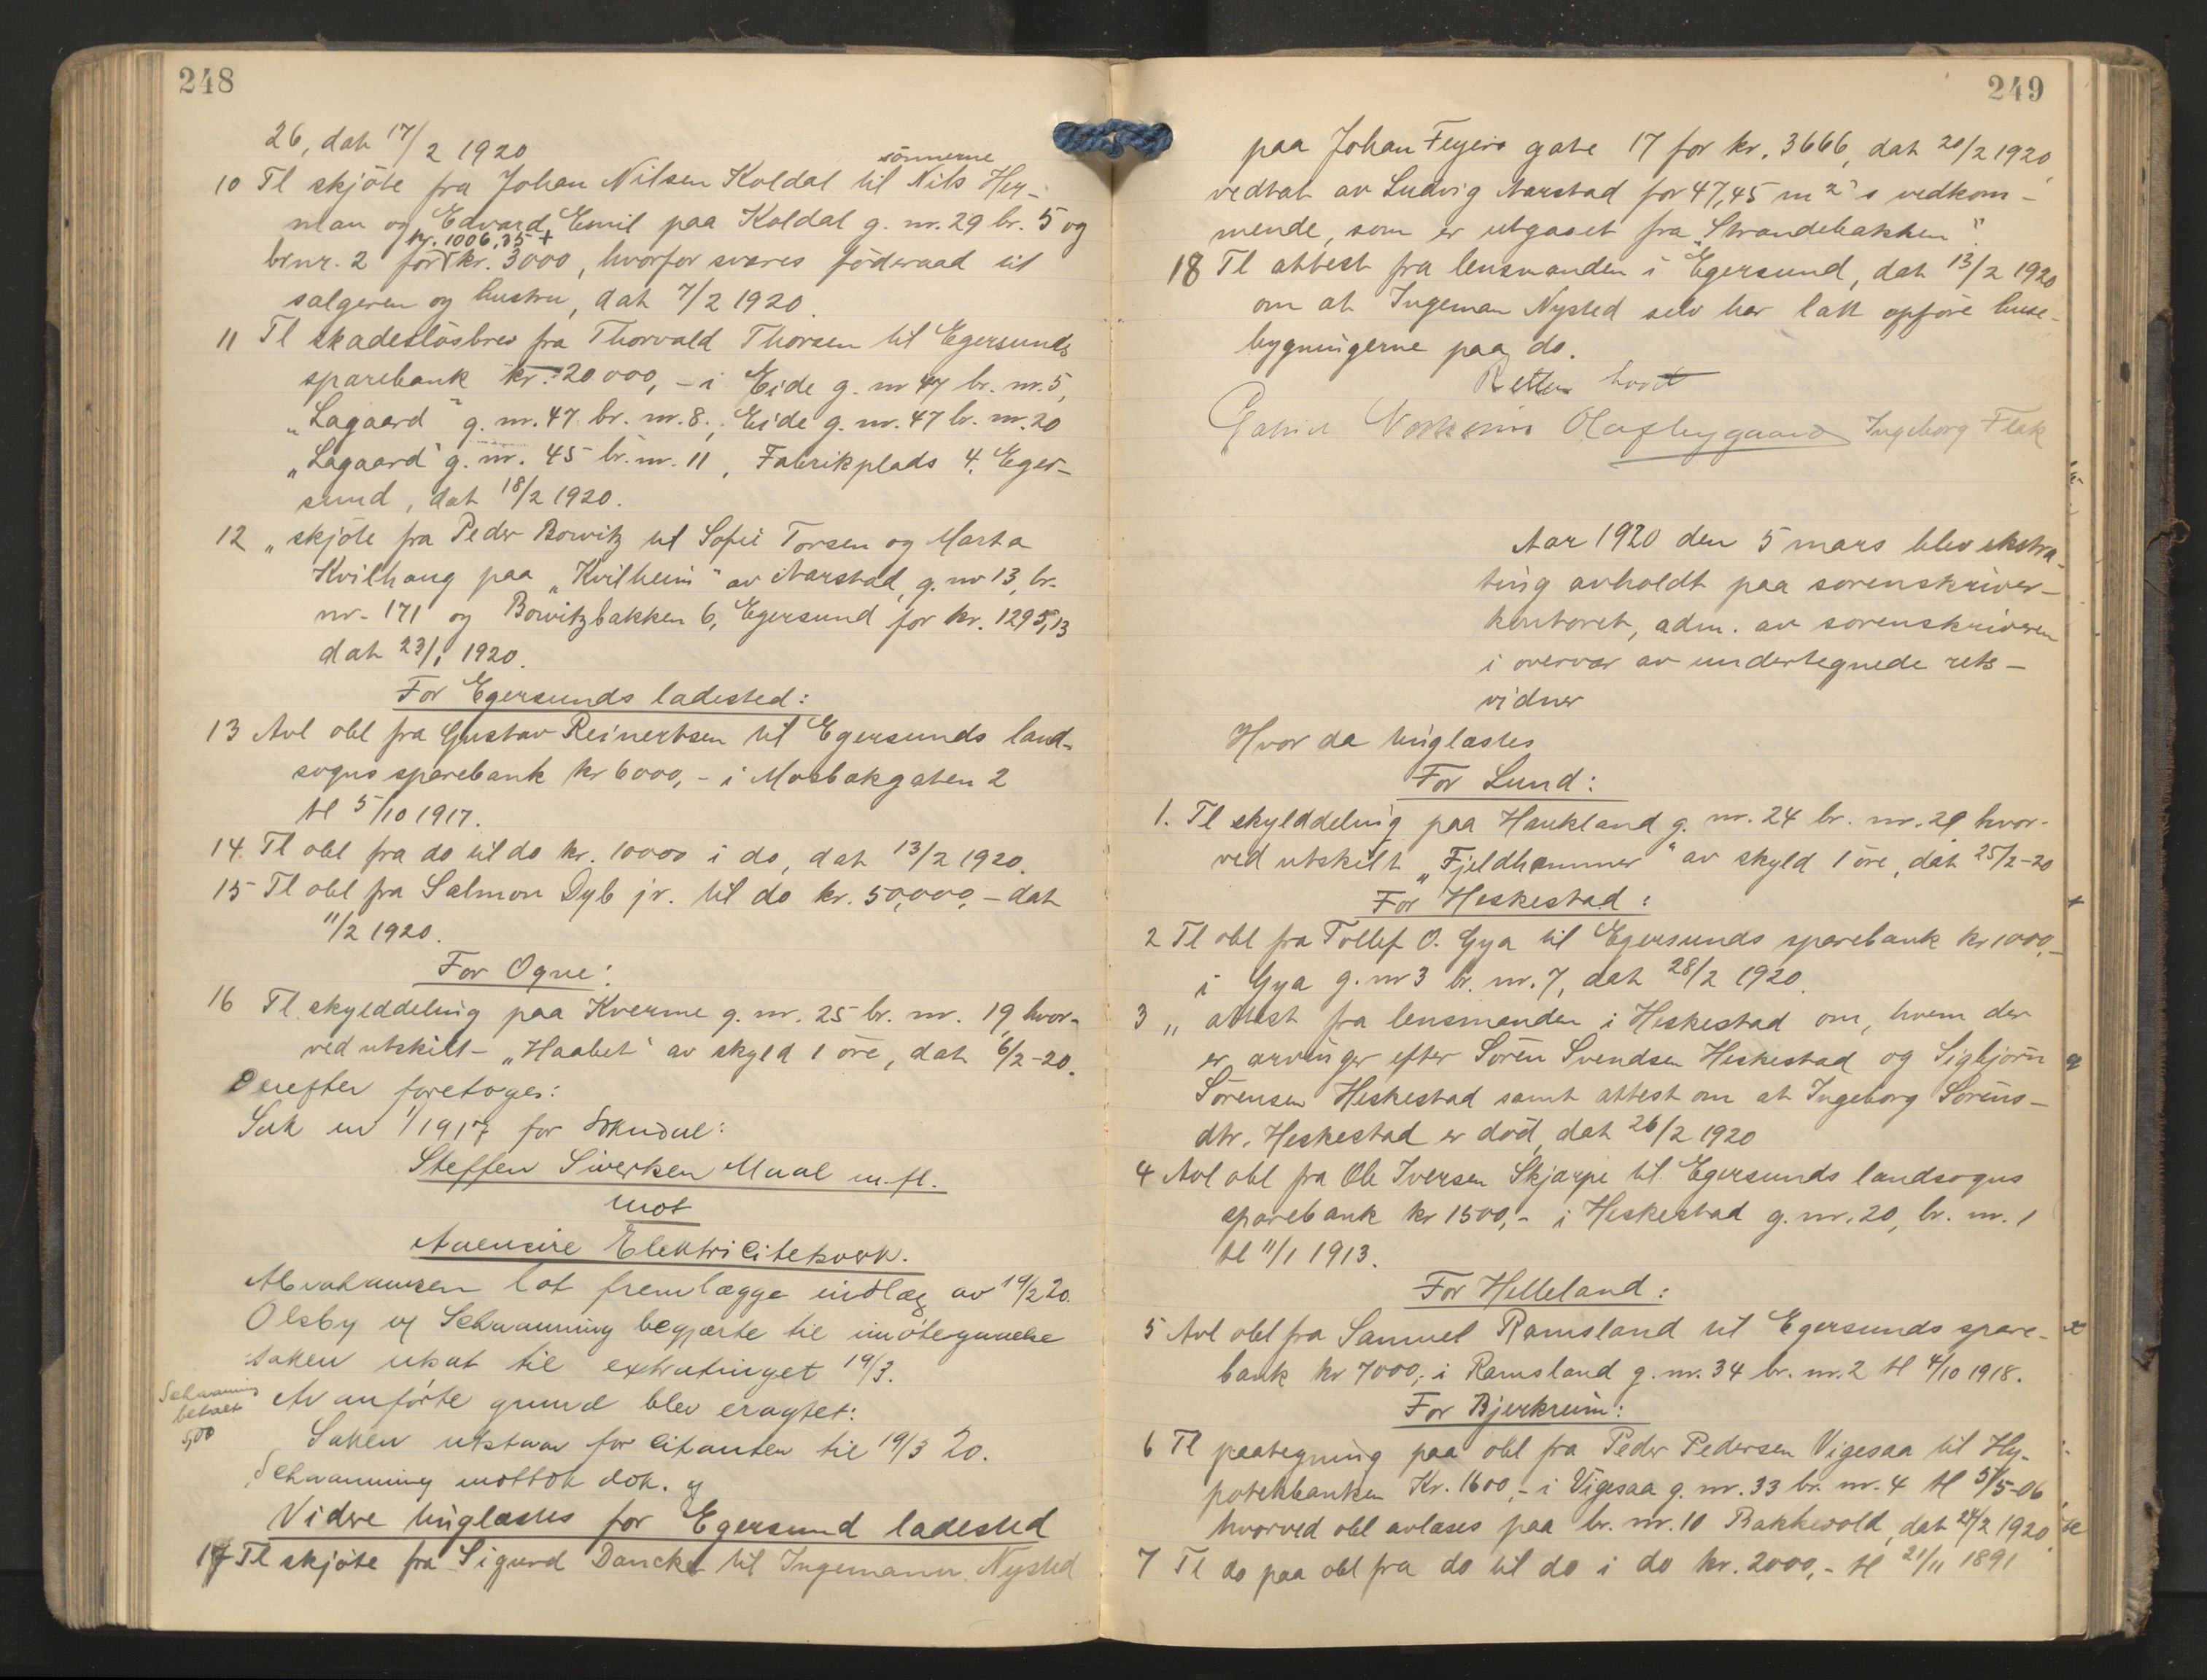 248
26, dat 17/2 1920
10 Tl skjöte fra Johan Nilsen Koldal til sönnerne Nils Her-
man og Edvard Emil paa Koldal g. nr. 29 br. 5 og
brnr. 2 for kr. 1006,35 + kr. 3000, hvorfor svares föderaad til
sælgeren og hustru, dat 7/2 1920.
11 Tl skadeslösbrev fra Thorvald Thorsen til Egersunds
sparebank kr. 20000,- i Eide g. nr 47 br. nr. 5,
"Lagaard" g. nr. 47 br. nr. 8., Eide g. nr. 47 br. nr. 20
"Lagaard" g. nr. 45 br. nr. 11, Fabrikplads 4. Eger-
sund, dat 18/2 1920.
12 " skjöte fra Peder Bowitz til Sofie Torsen og Marta
Kvilhaug paa "Kvilheim" av Aarstad, g. nr 13, br.
nr. 171 og Bowitzbakken 6, Egersund for kr. 1295,13
dat 23/1 1920.
For Egersunds ladested:
13 Avl obl fra Gustav Reinertsen til Egersunds land-
sogns sparebank kr 6000,- i Mosbækgaten 2
tl 5/10 1917.
14. Tl obl fra do til do kr. 10000 i do, dat 13/2 1920.
15 Tl obl fra Salmon Dyb jr. til do kr. 50,000,- dat
11/2 1920.
For Ogne:
16 Tl. skylddeling paa Kverme g. nr. 25 br. nr. 19, hvor-
ved utskilt - "Haabet" av skyld 1 öre, dat 6/2-20.
Derefter foretoges:
Sak nr 1/1917 for Sokndal:
Steffen Sivertsen Mual m.fl.
mot
Aaensire Elektricitetsverk.
Abrahamsen lot fremlægge indlæg av 19/2 20.
Olsby og Schaanning begjærte til imötegaaelse
saken utsat til extratinget 19/3.
Schaanning
betalt
5,00
Av anförte grund blev eragtet:
Saken utstaar for citanten til 19/3 20.
Schaanning mottok dok. og
Videre tinglæstes for Egersund ladested
17 Tl skjöte fra Sigurd Danckel til Ingemann Nysted
249
paa Johan Feyers gate 17 for kr. 3666, dat 20/2 1920,
vedtat av Ludvig Aarstad for 47,45 m2's vedkom-
mende, som er utgaaet fra "Strandebakken".
18 Tl attest fra lensmanden i Egersund, dat 13/2 1920
om at Ingeman Nysted selv har latt opföre huse-
bygningerne paa do.
Retten hævet
Olaf Nygaard Ingeborg Flak
Aar 1920 den 5 mars blev ekstra-
ting avholdt paa sorenskriver-
kontoret, adm. av sorenskriveren
i overvær av undertegnede rets-
vidner
Hvor da tinglæstes
For Lund:
1. Tl skylddeling paa Haukland g. nr. 24 br. nr. 29 hvor-
ved utskilt "Fjeldhammer" av skyld 1 öre, dat 25/2-20
For Heskestad:
2 Tl obl fra Tollef O. Gya til Egersunds sparebank kr 1000,-
i Gya g. nr 3 br. nr. 7, dat 28/2 1920.
3 " attest fra lensmanden i Heskestad om, hvem der
er arvinger efter Sören Svendsen Heskestad og Sigbjörn
Sörensen Heskestad samt attest om at Ingeborg Sörens-
dtr. Heskestad er död, dat 26/2 1920
4 Avl obl fra Ole Iversen Skjærpe til Egersunds landsogns
sparebank kr 1500,- i Heskestad g. nr. 20, br. nr. 1
tl 11/1 1913.
For Helleland:
5 Avl obl fra Samuel Ramsland til Egersunds spare-
bank kr 7000,- i Ramsland g. nr. 34 br. nr. 2 tl 4/10 1918.
For Bjerkreim:
6 Tl paategning paa obl fra Peder Pedersen Vigesaa til Hy-
potekbanken Kr. 1600,- i Vigesaa g. nr. 33 br. nr. 4 tl 5/5-06,
hvorved obl avlæses paa br. nr. 10 Bakkevold, dat 24/2 1920.
7 Tl do paa obl fra do til do i do kr. 2000,- tl 21/11 1891